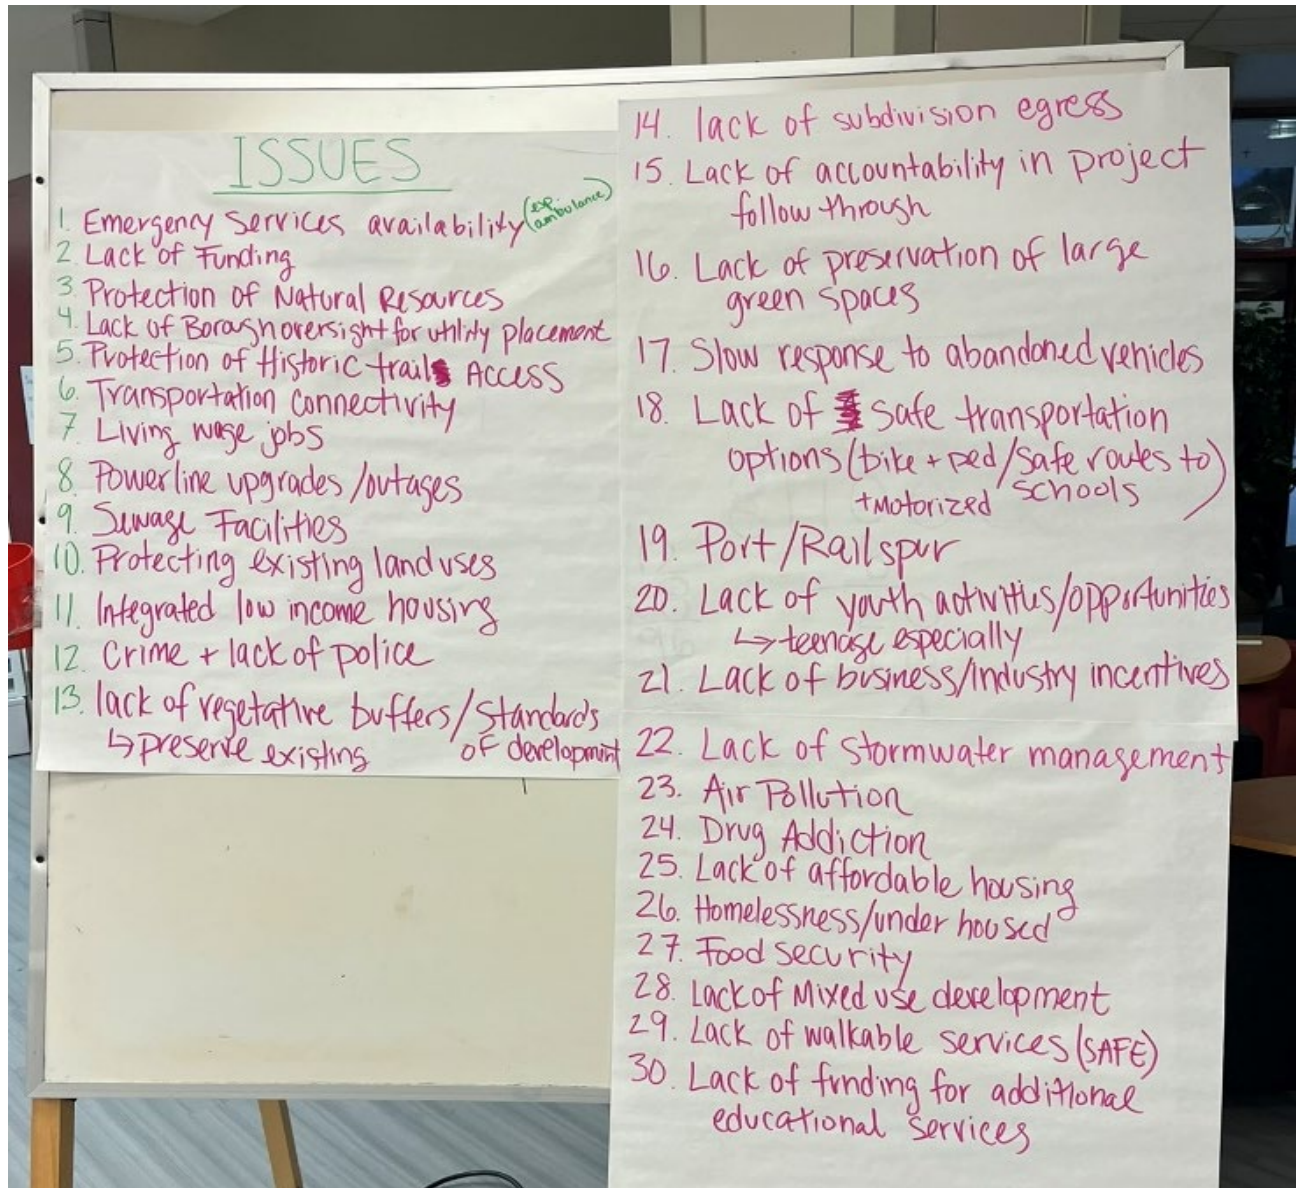 ISSUES
1. Emergency Services availability (esp. ambulance)
2. Lack of Funding
3. Protection of Natural Resources
4. Lack of Borough oversight for utility placement
5. Protection of Historic trail Access
6. Transportation Connectivity
7. Living wage jobs
8. Powerline upgrades/outages
9. Sewage Facilities
10. Protecting existing land uses
11. Integrated low income housing
12. Crime + lack of police
13. lack of vegetative buffers/Standards
↳ preserve existing of development
14. lack of subdivision egress
15. Lack of accountability in project
follow through
16. Lack of preservation of large
green spaces
17. Slow response to abandoned vehicles
18. Lack of safe transportation
options (bike + ped/safe routes to
+ Motorized schools)
19. Port/Rail spur
20. Lack of youth activities/opportunities
↳ teenage especially
21. Lack of business/industry incentives
22. Lack of Stormwater management
23. Air Pollution
24. Drug Addiction
25. Lack of affordable housing
26. Homelessness/under housed
27. Food security
28. Lack of Mixed use development
29. Lack of walkable services (SAFE)
30. Lack of funding for additional
educational services